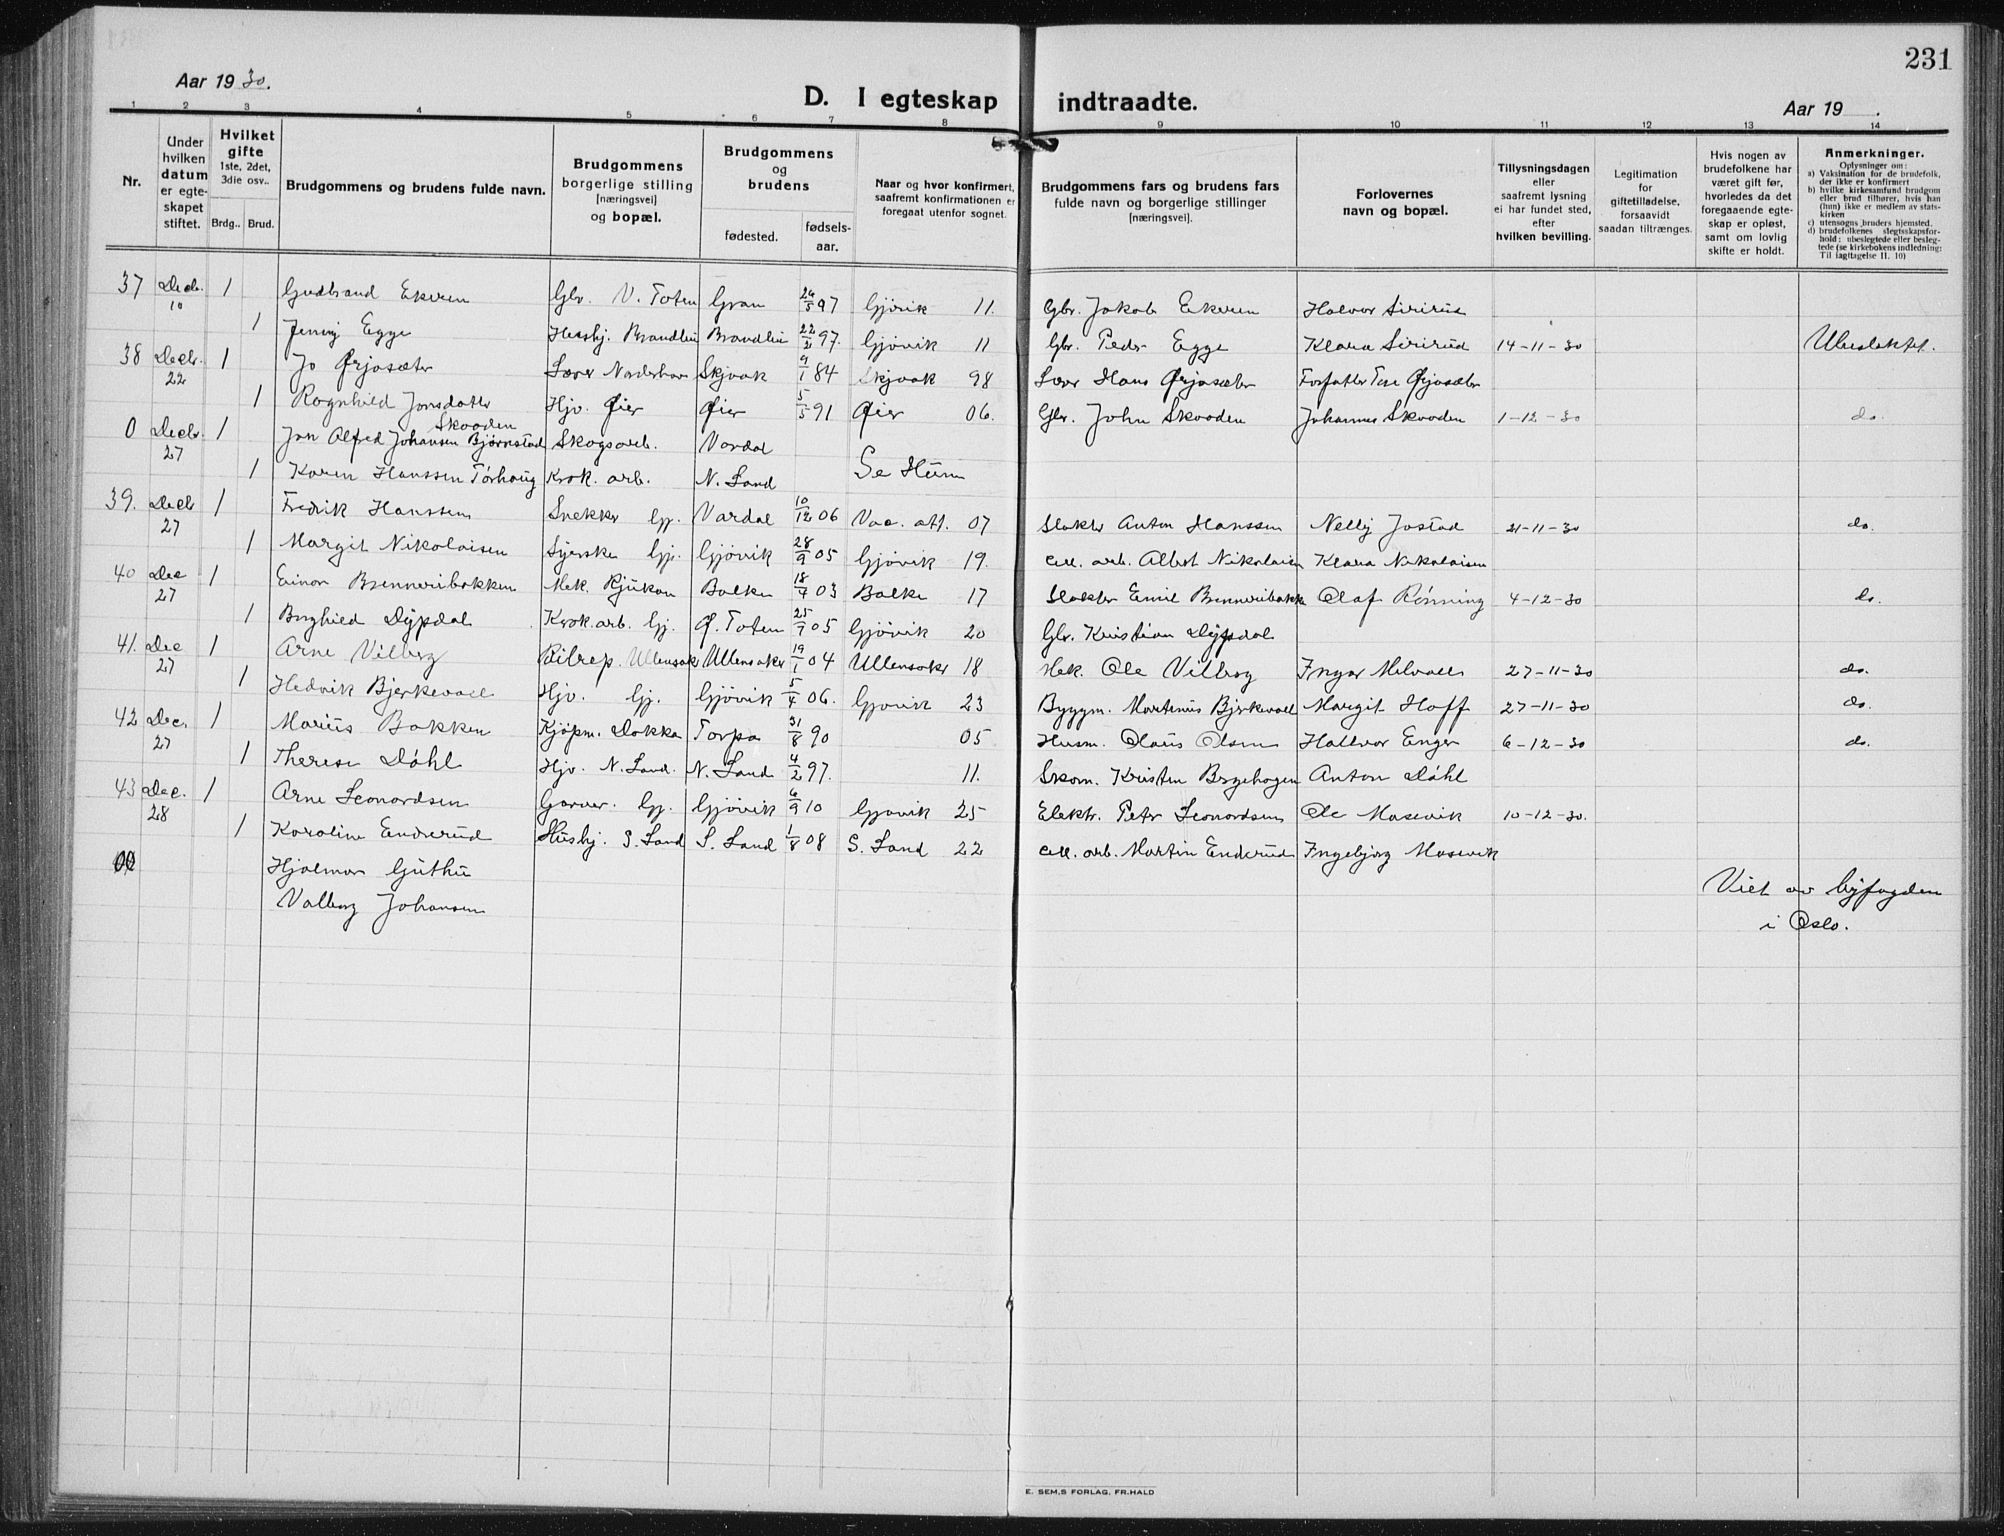 231
Aar 1930.
D. I egteskap indtraadte.
Aar 19 .
1 2 3 4 5 6 7 8 9 10 11 12 13 14
Nr.
Under hvilken datum er egteskapet stiftet.
Hvilket gifte 1ste, 2det, 3die osv..
Brdg.. Brud.
Brudgommens og brudens fulde navn.
Brudgommens borgerlige stilling [næringsvei] og bopæl.
Brudgommens og brudens
fødested.
fødselsaar.
Naar og hvor konfirmert, saafremt konfirmationen er foregaat utenfor sognet.
Brudgommens fars og brudens fars fulde navn og borgerlige stillinger [næringsvei].
Forlovernes navn og bopæl.
Tillysningsdagen eller saafremt lysning ei har fundet sted, efter hvilken bevilling.
Legitimation for giftetilladelse, forsaavidt saadan tiltrænges.
Hvis nogen av brudefolkene har været gift før, hvorledes da det foregaaende egteskap er opløst, samt om lovlig skifte er holdt.
Anmerkninger.
Oplysninger om:
a) Vaksination for de brudefolk, der ikke er konfirmert
b) hvilke kirkesamfund brudgom eller brud tilhører, hvis han (hun) ikke er medlem av statskirken
c) utensogns bruders hjemsted.
d) brudefolkenes slegtsskapsforhold: ubeslegtede eller beslegtede (se kirkebokens indledning: Til iagttagelse II. 10)
37 Decb. 10 1 Gudbrand Ekeren Gbr. V. Toten Gran 26/5 97 Gjövik 11. Gbr. Jakob Ekeren Halvor
1 Jenny Egge 22/2 97. Gjövik 11 Gbr. Peder Egge Klara 14-11-30 Ubeslektet.
38 Decb. 22 1 Jo Ørjasæter Lærer Norderhov Skjaak 9/1 84 Skjaak 98 Lærer Hans Ørjasæter Forfatter Tore Ørjasæter
1 Ragnhild Jonsdatter Skaaden Hjv. Øier Øier 5/5 91 Øier 06. Gbr. John Skaaden Johannes Skaaden 1-12-30 do.
0 Decb. 27 1 Jan Alfred Johansen Bjørnstad Skogsarb. Vardal
1 Karen Hanssen Tørhaug Krok. arb. N. Land Se Hunn
39. Decb 27 1 Fredrik Hanssen Snekker Gj. Vardal 10/12 06 Vac. att. 07 Slakter Anton Hanssen Nelly Jostad 21-11-30 do.
1 Margit Nikolaisen Syerske Gj. Gjövik 28/9 05 Gjövik 19. Cell. arb. Albert Nikolaisen Klara Nikolaisen
40 Dec 27 1 Einar Brenneribakken Mek. Rjukan Balke 18/7 03 Balke 17 Slakter Emil Brenneribakk Olaf Rönning 4-12-30 do.
1 Borghild Dypdal Krok. arb. Gj. Ø. Toten 25/9 05 Gjövik 20 Gbr. Kristian Dypdal
41. Dec 27 1 Arne Vilberg Bilrep. Ullensaker Ullensaker 19/1 04 Ullensaker 18 Mek. Ole Vilberg Ingar Melvold 27-11-30 do.
1 Hedvik Bjerkevold Hjv. Gj. Gjövik 5/4 06. Gjövik 23 Byggm. Martinus Bjerkevold Margit Hoff 27-11-30 do.
42 Dec. 27 1 Marius Bakken Kjöpm. Dokka Torpa 31/8 90 05 Husm. Olaus Olsen Hallvor Enger 6-12-30 do.
1 Therese Döhl Hjv. N. Land. N. Land 4/2 97. 11. Skom. Kristen Anton Döhl
43 Dec. 28 1 Arne Leonardsen Garver. Gj. Gjövik 6/9 10 Gjövik 25 Elektr. Peter Leonardsen Ole Masevik 10-12-30.
1 Karoline Enderud Hushj. S. Land S. Land 1/8 08 S. Land 22 Cell. arb. Martin Enderud Ingebjørg Masevik
Hjalmar Guthu
Valborg Johansen
Viet av byfogden
i Oslo.
E. SEM,S FORLAG, FR.HALD